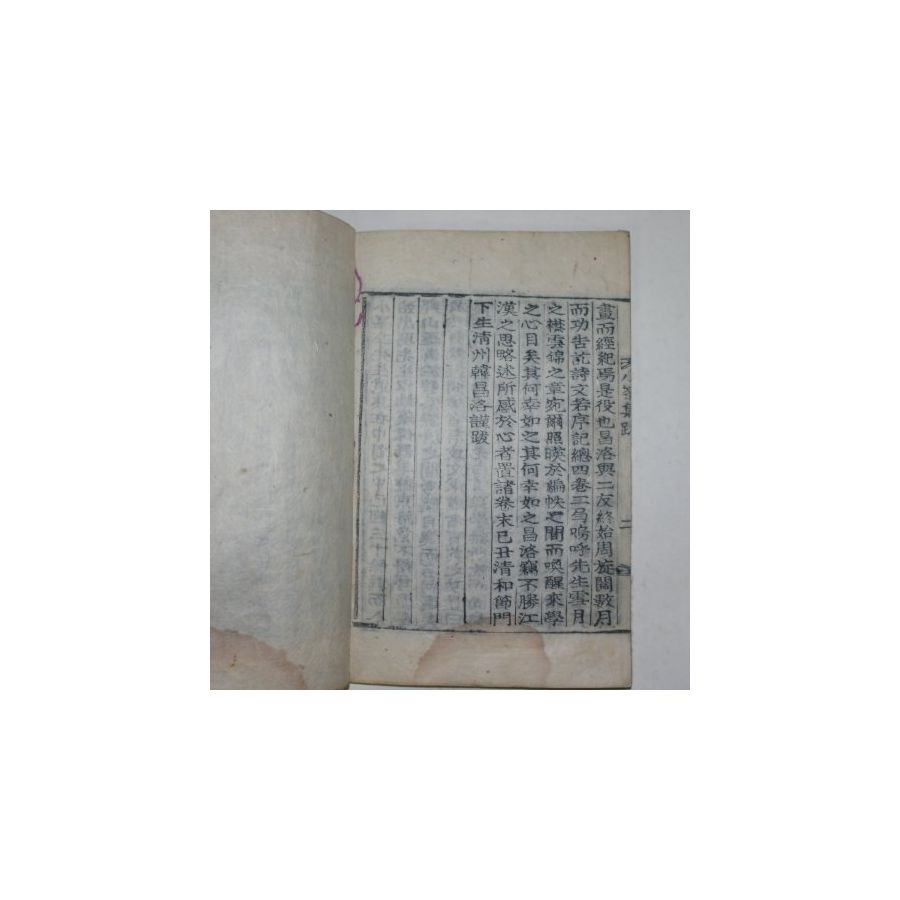 畫而經紀焉是役也昌洛與二友終始周旋閱數月
而功告訖詩文若序記總四卷二局嗚呼先生雲月
之襟雲錦之章宛爾照暎於編帙之間而喚醒來學
之心目矣其何幸如之其何幸如之昌洛竊不勝江
漢之思略述所感於心者置諸卷末己丑清和節門
下生淸州韓昌洛謹跋
集跋
二